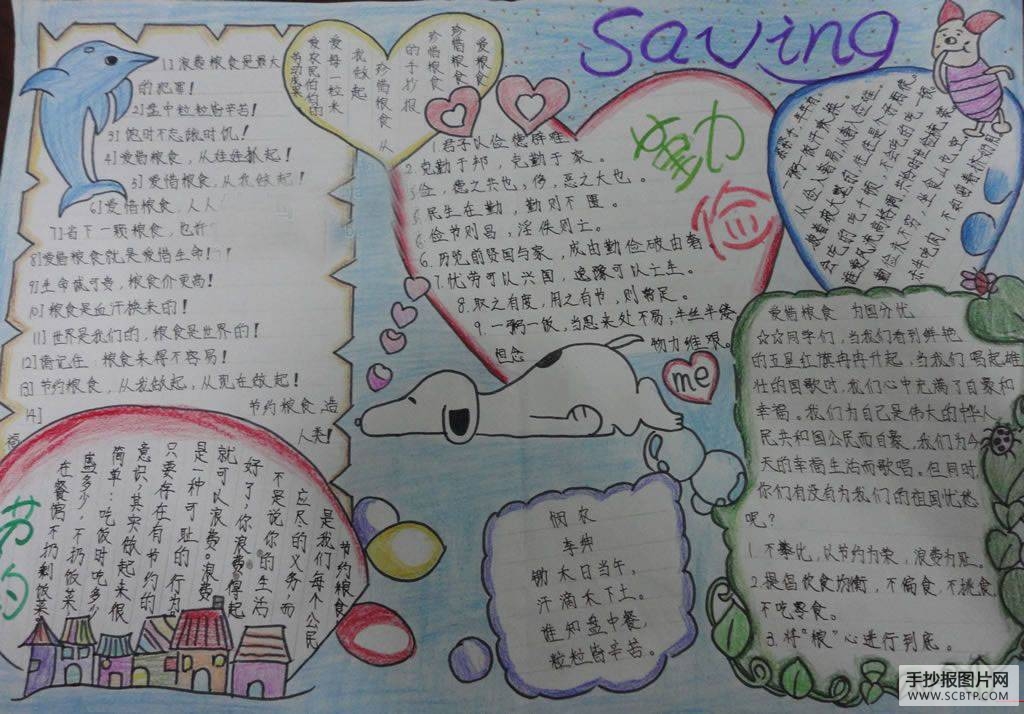 Saving
勤
俭
节约
me
爱粮食
珍惜粮食
珍惜粮食
的手抄报
珍惜粮食从
我做起
爱每一粒米
爱农民伯伯的
1] 浪费粮食是最大
的犯罪!
2] 盘中粒粒皆辛苦!
3] 饱时不忘饿时饥!
4] 爱惜粮食,从娃娃抓起!
5] 爱惜粮食,从我做起!
6] 爱惜粮食,人人
7] 省下一颗粮食,也
8] 爱惜粮食就是爱惜生命!
9] 生命诚可贵,粮食价更高!
10] 粮食是血汗换来的!
11] 世界是我们的,粮食是世界的!
12] 需记住:粮食来得不容易!
13] 节约粮食,从我做起,从现在做起!
14] 节约粮食,造
福 人类!
1.君子以俭德辟难
2.克勤于邦,克勤于家。
3俭,德之共也;侈,恶之大也。
5民生在勤,勤则不匮。
6.俭节则昌,淫佚则亡。
6.历览前贤国与家,成由勤俭破由奢。
7.忧劳可以兴国,逸豫可以亡生。
8.取之有度,用之有节,则常足。
9.一粥一饭,当思来处不易;半丝半缕
恒念 物力维艰。
节约粮食
是我们每个公民
应尽的义务,而
不是说你的生活
好了,你浪费得起
就可以浪费。浪费
是一种可耻的行为
只要存在有节约的
意识,其实做起来很
简单:吃饭时吃多少
盛多少,不扔饭菜
在餐馆不扔剩饭菜
悯农
李绅
锄禾日当午,
汗滴禾下土。
谁知盘中餐,
粒粒皆辛苦。
爱惜粮食 为国分忧
☆☆同学们,当我们看到鲜艳
的五星红旗冉冉升起,当我们唱起雄
壮的国歌时,我们心中充满了自豪和
幸福。我们为自己是伟大的中华人
民共和国公民而自豪,我们为今
天的幸福生活而歌唱。但同时,
你们有没有为我们的祖国忧愁
呢?
1.不攀比,以节约为荣,浪费为耻。
2.提倡饮食均衡,不偏食,不挑食,
不吃零食。
3.将“粮”心进行到底。
手抄报图片网
WWW.SCBTP.COM